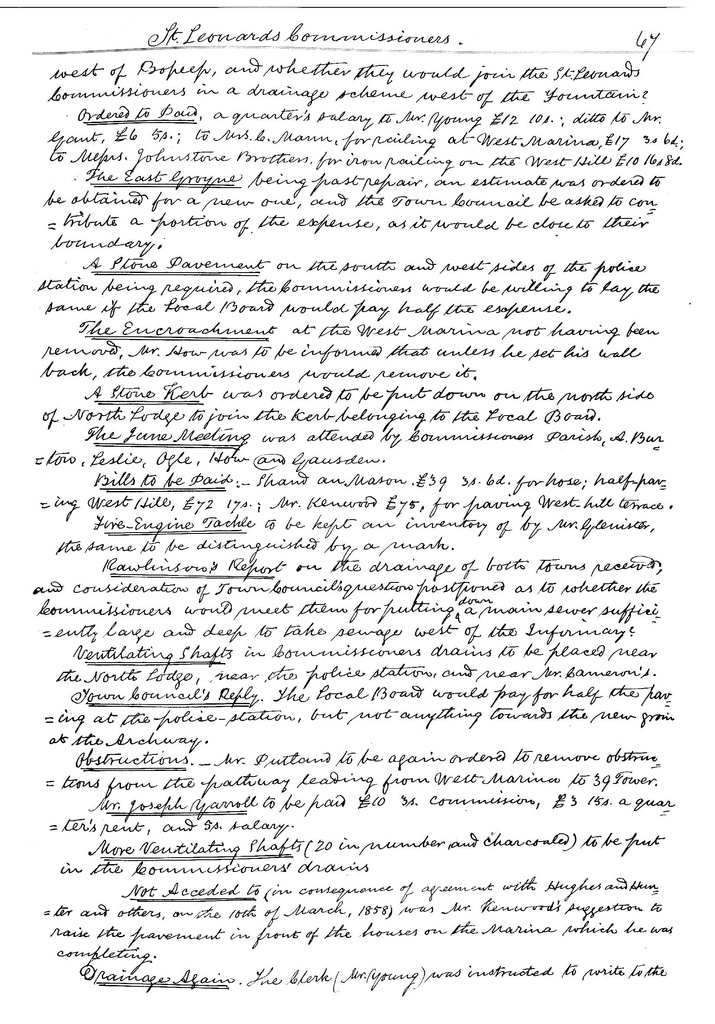 St. Leonards Commissioners. 67
west of Bopeep, and whether they would join the St. Leonards
Commissioners in a drainage scheme west of the Fountain?
Ordered to Paid, a quarter's salary to Mr. Young £12 10s.; ditto to Mr.
Gant, £6 5s.; to Mrs. C. Mann, for railing at West Marina, £17 3s 6d.;
to Messrs. Johnstone Brothers, for iron railing on the West Hill £10 16s 8d.
The East Groyne being past repair, an estimate was ordered to
be obtained for a new one, and the Town Council be asked to con=
=tribute a portion of the expense, as it would be close to their
boundary.
A Stone Pavement on the south and west sides of the police
station being required, the Commissioners would be willing to lay the
same if the Local Board would pay half the expense.
The Encroachment at the West Marina not having been
removed, Mr. How was to be informed that unless he set his wall
back, the Commissioners would remove it.
A Stone Kerb was ordered to be put down on the north side
of North Lodge to join the kerb belonging to the Local Board.
The June Meeting was attended by Commissioners Parish, A. Bur=
=ton, Leslie, Ogle, How and Gausden.
Bills to be Paid:- Shand an Mason £39 3s. 6d. for hose; half-pav=
=ing West Hill, £72 17s.; Mr. Kenwood £75, for paving West-hill terrace.
Fire-Engine Tackle to be kept an inventory of by Mr. Glenister,
the same to be distinguished by a mark.
Rawlinson's Report on the drainage of both towns received,
and consideration of Town Council's question postponed as to whether the
Commissioners would meet them for putting down a main sewer suffici=
=ently large and deep to take sewage west of the Infirmary?
Ventilating Shafts in Commissioners drains to be placed near
the North Lodge, near the police station, and near Mr. Cameron's.
Town Council's Reply. The Local Board would pay for half the pav=
=ing at the police-station, but not anything towards the new groin
at the Archway.
Obstructions. - Mr. Putland to be again ordered to remove obstruc=
=tions from the pathway leading from West Marina to 39 Tower.
Mr. Joseph Yarroll to be paid £10 3s. commission, £3 15s. a quar=
=ter's rent, and 5s. salary.
More Ventilating Shafts (20 in number and charcoaled) to be put
in the Commissioners' drains
Not Acceded to (in consequence of agreement with Hughes and Hun=
=ter and others, on the 10th of March, 1858) was Mr. Kenwood's suggestion to
raise the pavement in front of the houses on the Marina which he was
completing.
Drainage Again. The Clerk (Mr. Young) was instructed to write to the